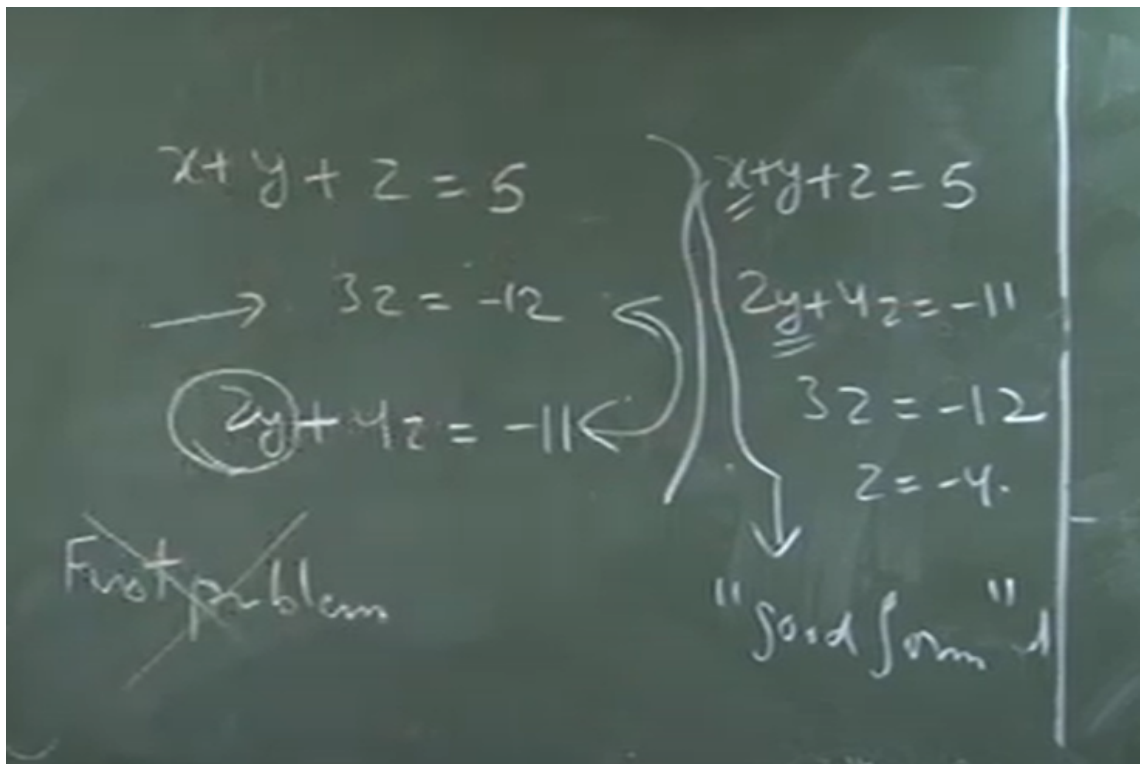 x+y+z=5
3z=-12
2y+4z=-11
First problem
x+y+z=5
2y+4z=-11
3z=-12
z=-4.
"good form"